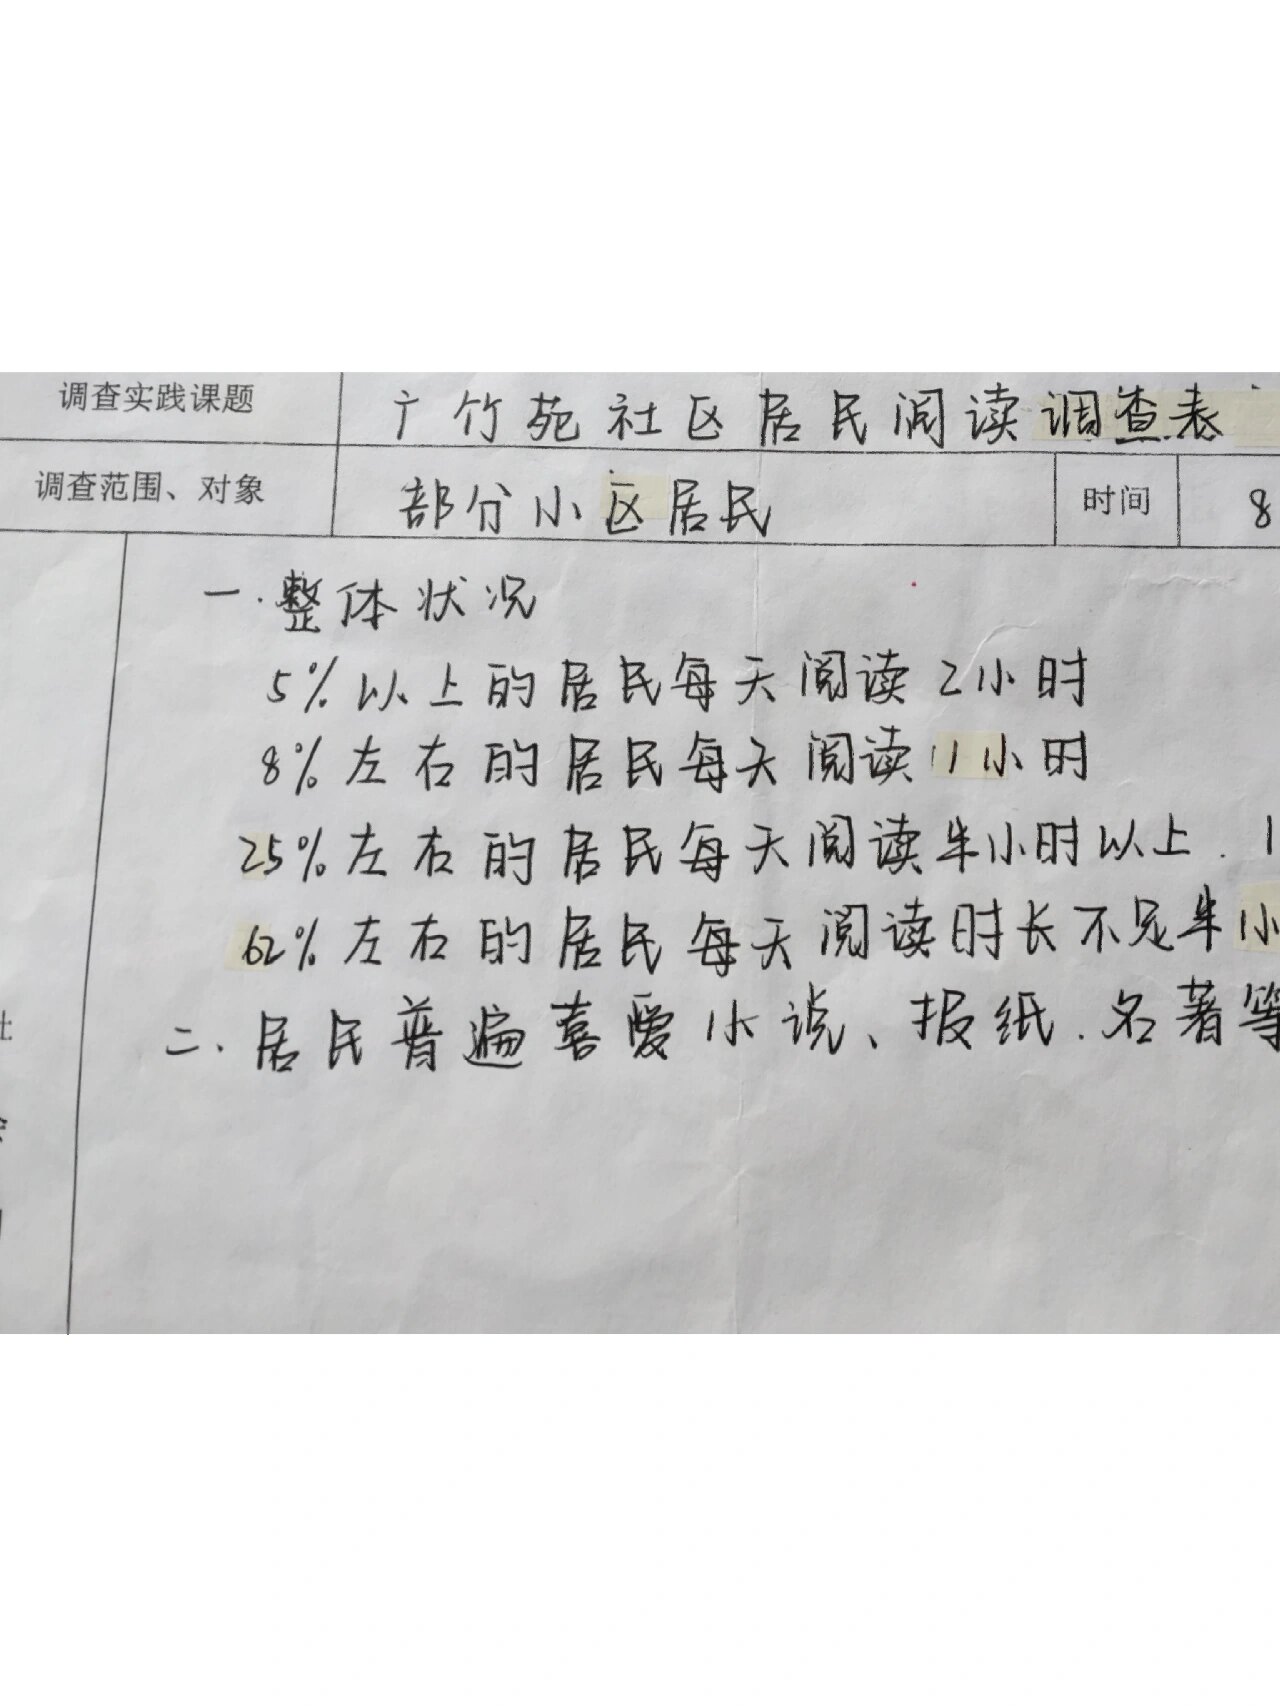 调查实践课题 广竹苑社区居民阅读调查表
调查范围、对象 部分小区居民 时间 8
一.整体状况
5%以上的居民每天阅读2小时
8%左右的居民每天阅读11小时
25%左右的居民每天阅读半小时以上.1
62%左右的居民每天阅读时长不足半小
二.居民普遍喜爱小说、报纸.名著等